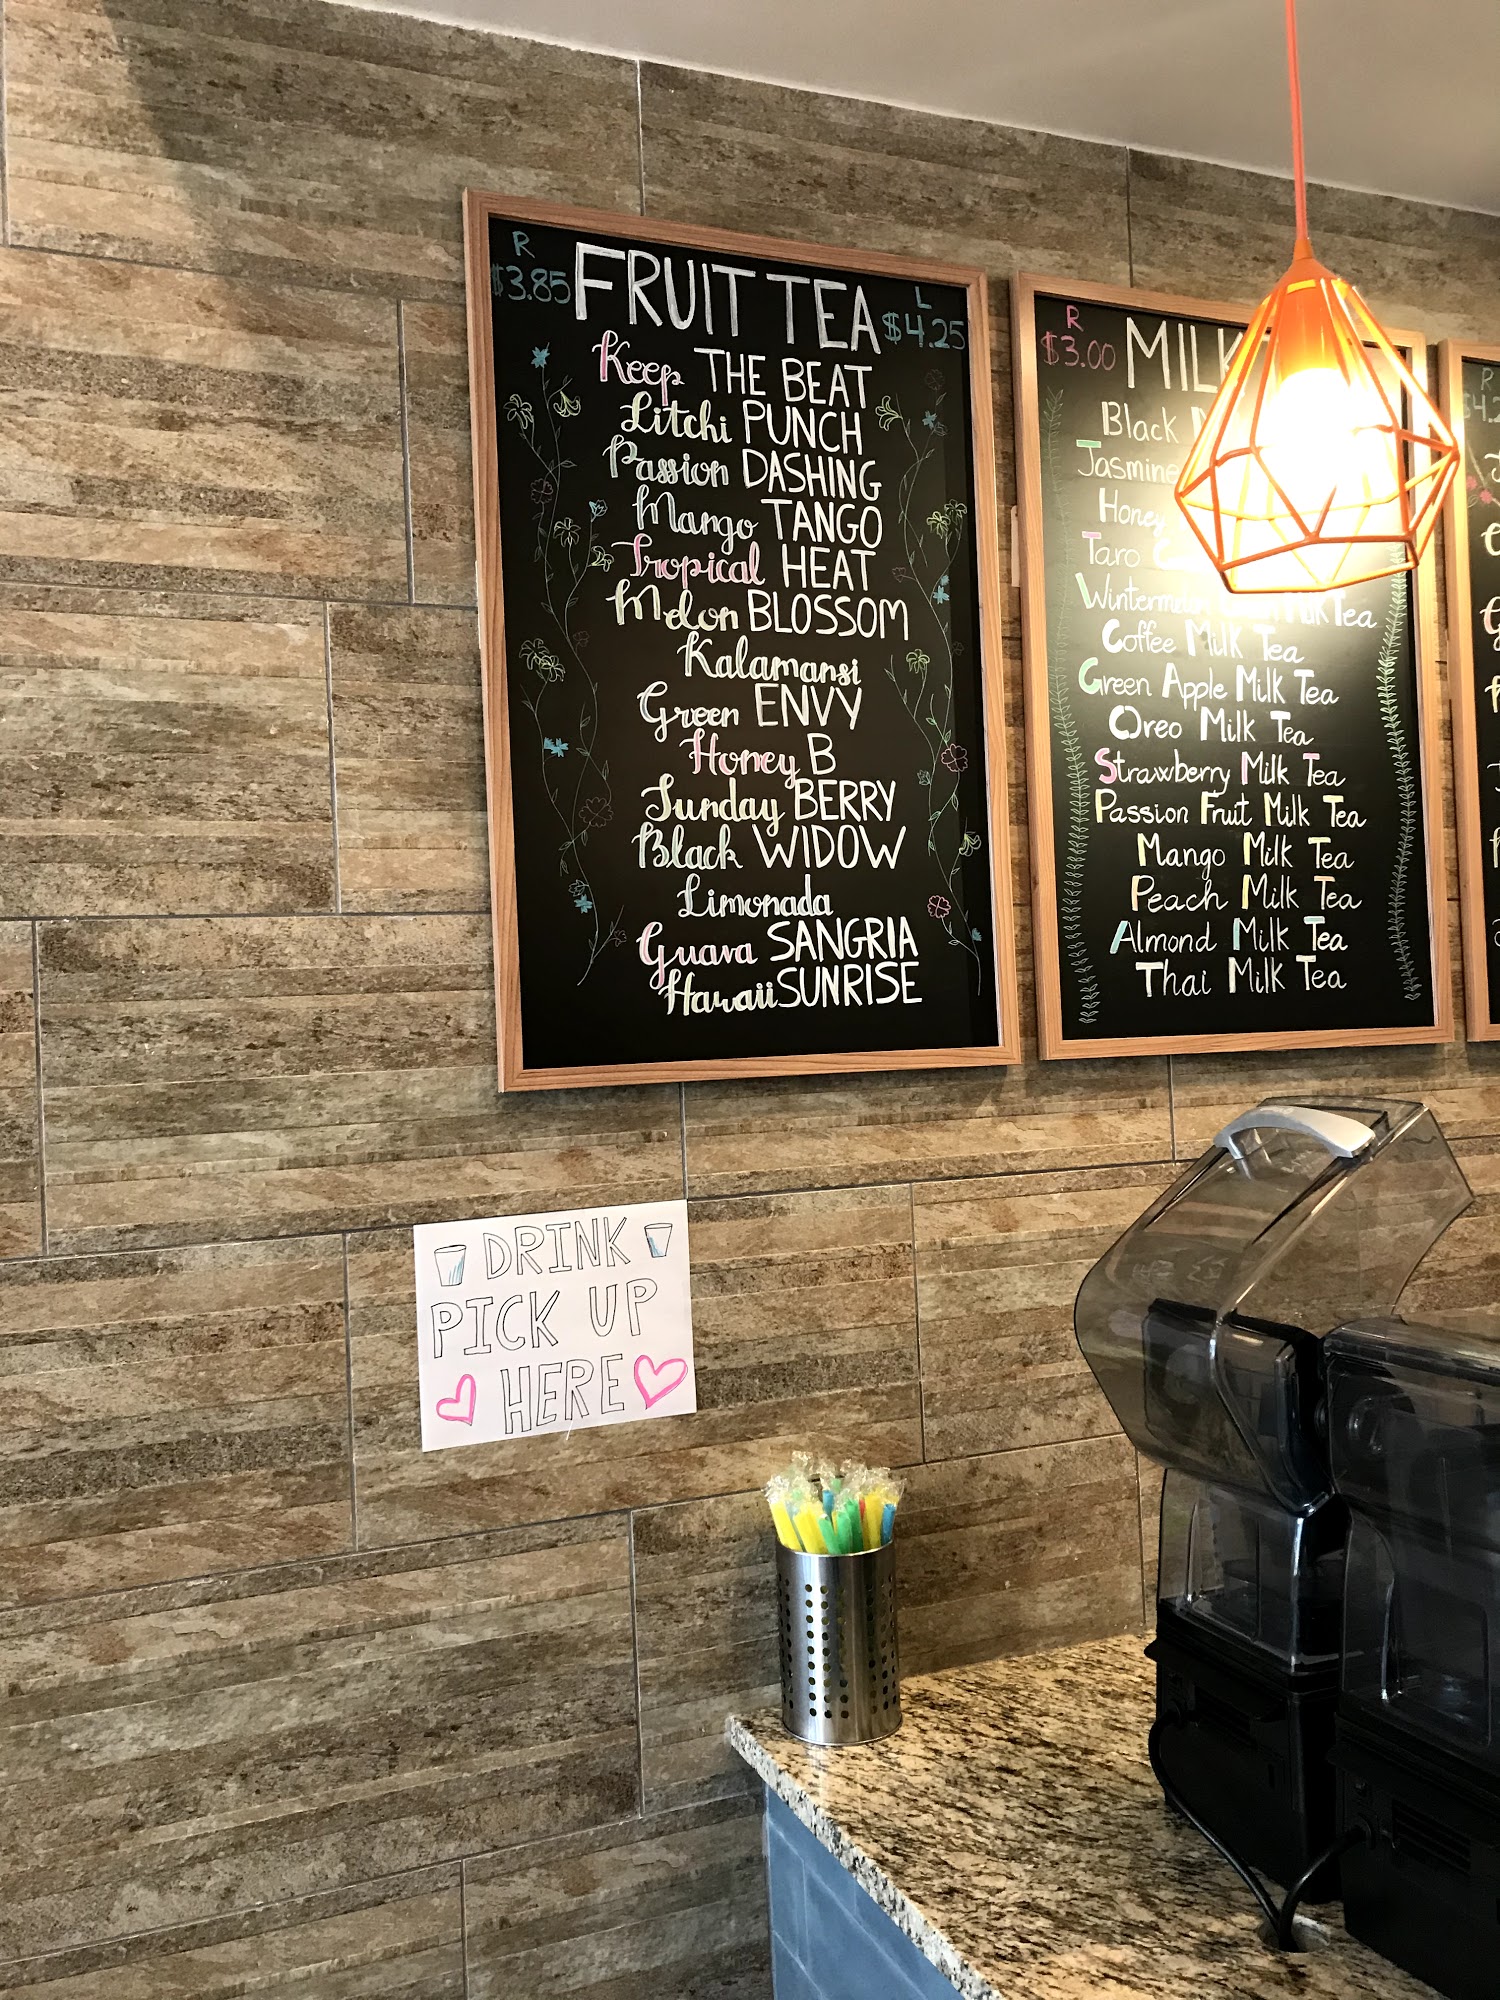 R
$3.85
FRUIT TEA
L
$4.25
Keep THE BEAT
Litchi PUNCH
Passion DASHING
Mango TANGO
Tropical HEAT
Melon BLOSSOM
Kalamansi
Green ENVY
Honey B
Sunday BERRY
Black WIDOW
Limonada
Guava SANGRIA
Hawaii SUNRISE
R
$3.00
MILK
Black
Jasmine
Honey
Taro
Milk Tea
Coffee Milk Tea
Green Apple Milk Tea
Oreo Milk Tea
Strawberry Milk Tea
Passion Fruit Milk Tea
Mango Milk Tea
Peach Milk Tea
Almond Milk Tea
Thai Milk Tea
R
DRINK
PICK UP
HERE